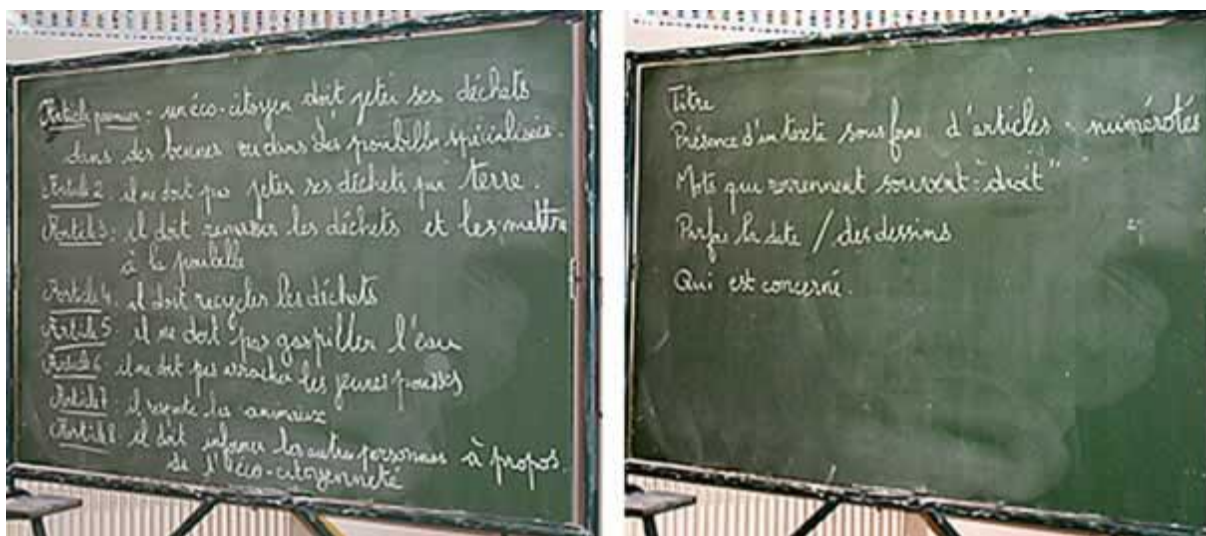 Article premier - un éco-citoyen doit jeter ses déchets
dans des bennes ou dans des poubelles spécialisées.
Article 2. il ne doit pas jeter ses déchets par terre.
Article 3. il doit ramasser les déchets et les mettre
à la poubelle
Article 4. il doit recycler les déchets
Article 5. il ne doit pas gaspiller l'eau
Article 6 il ne doit pas arracher les jeunes pousses
Article 7. il respecte les animaux
Article 8 il doit informer les autres personnes à propos.
de l'éco-citoyenneté
Titre
Présence d'un texte sous forme d'articles - numérotés
Mots qui reviennent souvent: "droit"
Parfois la date / des dessins
Qui est concerné.